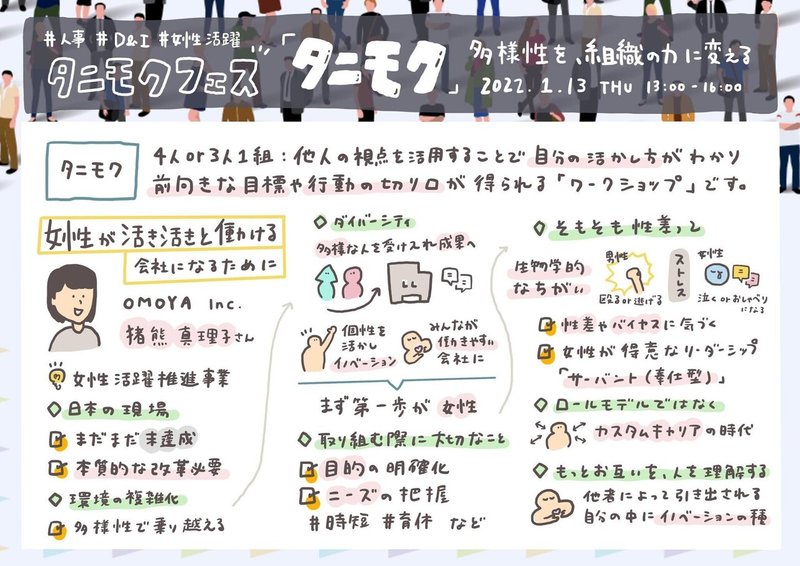 #人事 #D&I #女性活躍
タニモクフェス「タニモク」
多様性を、組織の力に変える
2022.1.13 THU 13:00-16:00
タニモク
4人or3人1組:他人の視点を活用することで自分の活かし方がわかり
前向きな目標や行動の切り口が得られる「ワークショップ」です。
女性が活き活きと働ける
会社になるために
OMOYA Inc.
猪熊真理子さん
女性活躍推進事業
日本の現場
まだまだ未達成
本質的な改革必要
環境の複雑化
多様性で乗り越える
ダイバーシティ
多様な人を受け入れ成果へ
個性を
活かし
イノベーション
みんなが
働きやすい
会社に
まず第一歩が女性
取り組む際に大切なこと
目的の明確化
ニーズの把握
#時短 #育休 など
そもそも性差って
生物学的
なちがい
男性
殴るor逃げる
ストレス
女性
泣くorおしゃべり
になる
性差やバイヤスに気づく
女性が得意なリーダーシップ
「サーバント(奉仕型)」
ロールモデルではなく
カスタムキャリアの時代
もっとお互いを、人を理解する
他者によって引き出される
自分の中にイノベーションの種